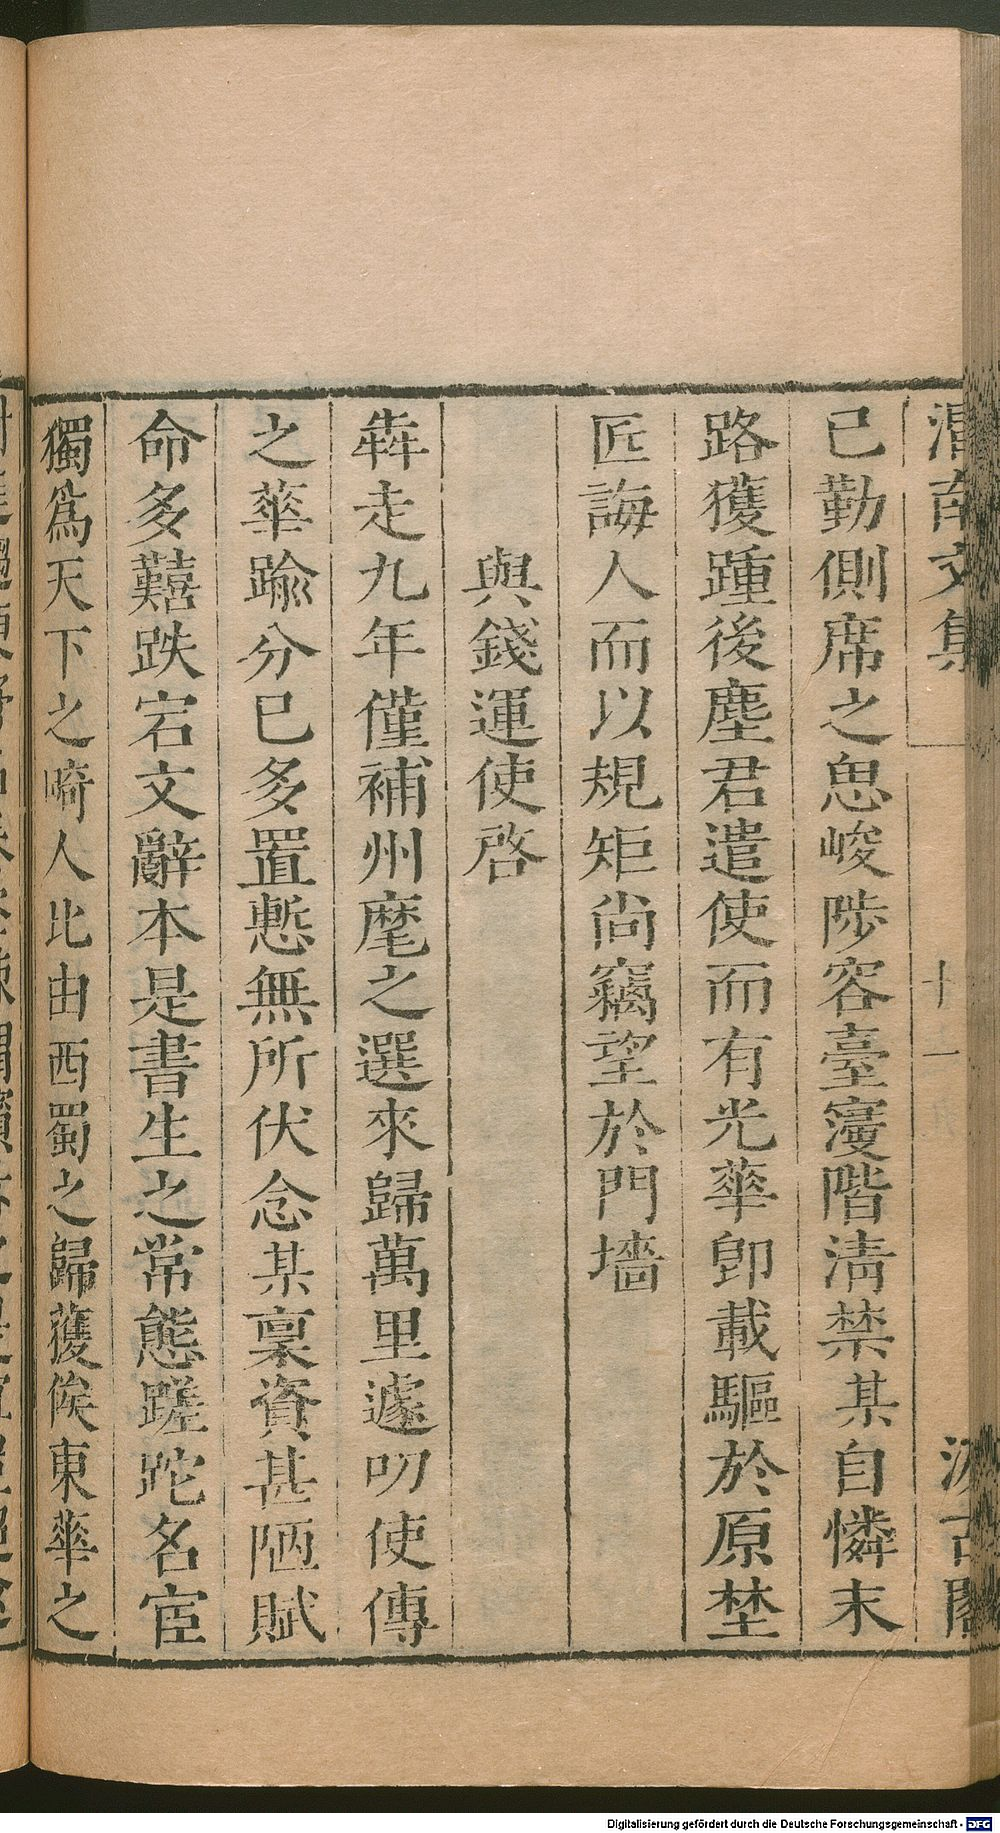 渭南文集
十一
汲古閣
已勤側席之思峻陟容臺寖階淸禁某自憐末
路獲踵後塵君遣使而有光華卽載驅於原埜
匠誨人而以規矩尙竊望於門墻
與錢運使啓
犇走九年僅補州麾之選來歸萬里遽叨使傳
之華踰分已多置慙無所伏念某稟資甚陋賦
命多囏跌宕文辭本是書生之常態蹉跎名宦
獨爲天下之畸人比由西蜀之歸獲俟東華之
Digitalisierung gefördert durch die Deutsche Forschungsgemeinschaft - DFG